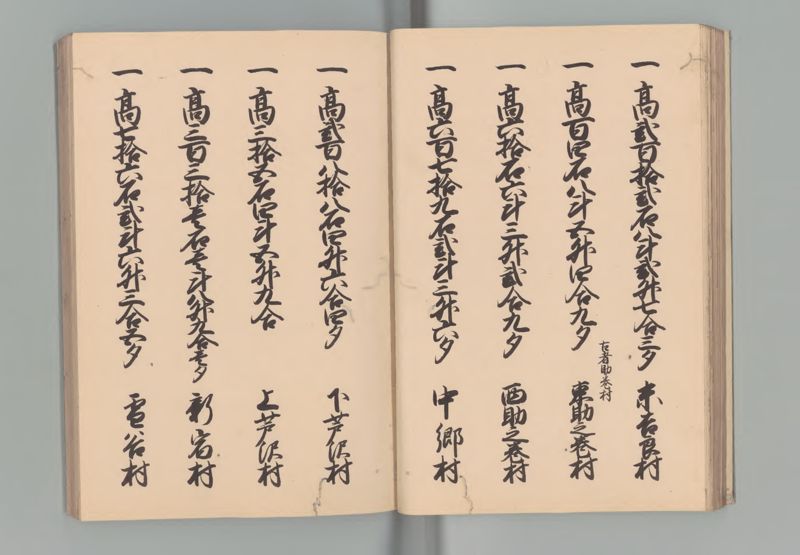 一 高弐百拾弐石八斗弐升七合三夕 末吉良村
一 高百四石八斗五升四合九夕 東助之巻村
古者助巻村
一 高六拾石六斗三升弐合九夕 西助之巻村
一 高六百七拾九石弐斗三升六夕 中郷村
一 高弐百八拾八石四升六合四夕 下芦沢村
一 高三拾五石四斗五升九合 上芦沢村
一 高三百三拾壱石壱斗八升九合壱夕 新宿村
一 高七拾六石弐斗六升三合五夕 雪谷村